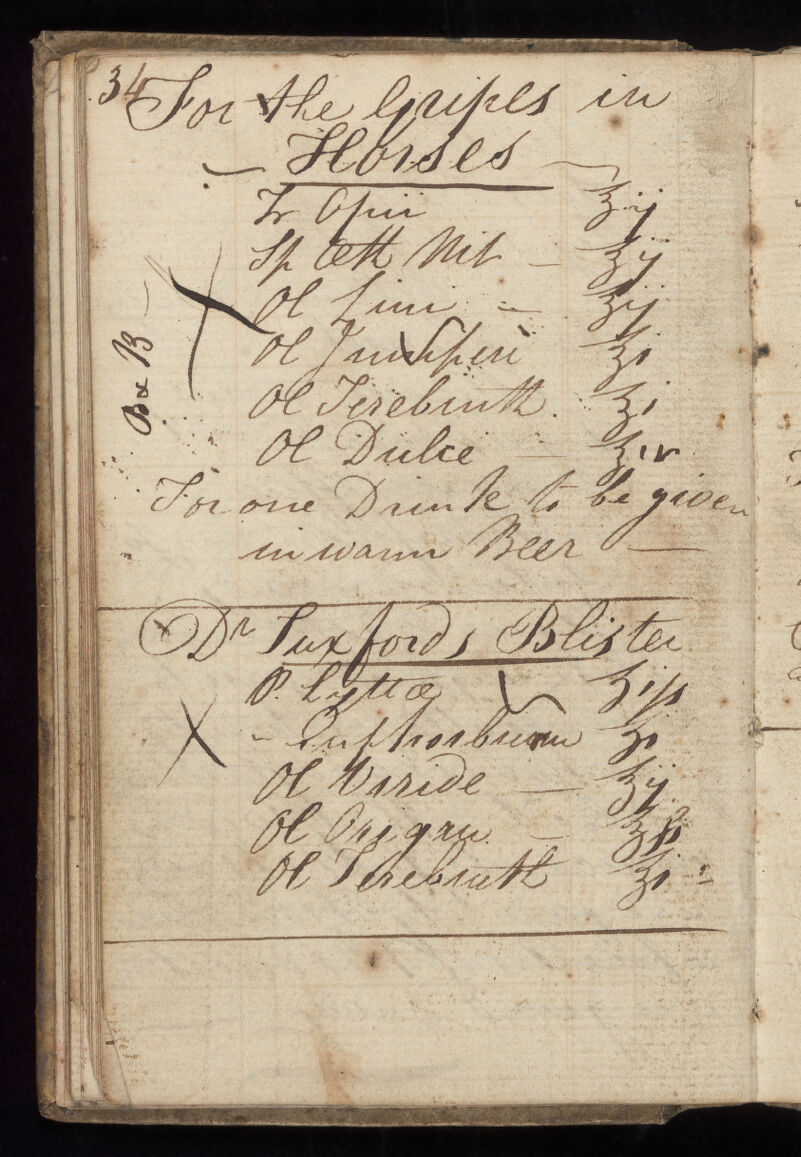 34
For the Gripes in
Horses
Tr Opii ʒij
Sp Æth Nit – ʒij
Ol Lini – ʒij
Ol Juniperi ʒi
Ol Terebinth ʒi
Ol Dulce – ʒiv
Box B
For one Drink to be given
in warm Beer —
Dr Tuxfords Blister
P. Lyttæ ʒijſs
– Euphorbium ʒi
Ol Viride — ʒij
Ol Origan – ʒſs
Ol Terebinth ʒi